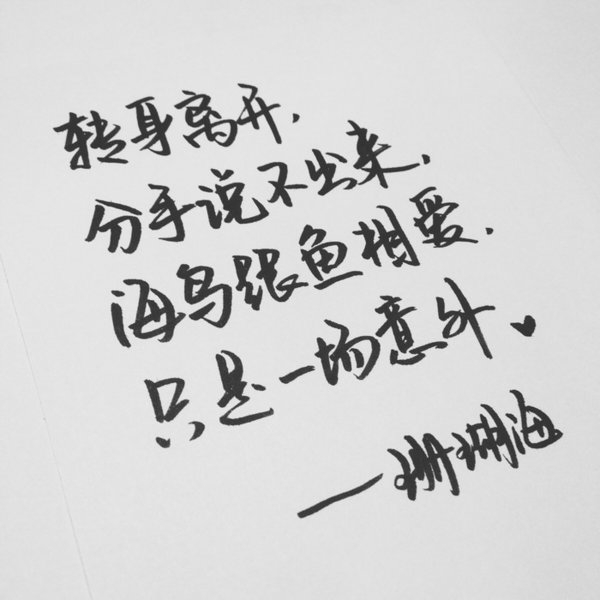 转身离开,
分手说不出来,
海鸟跟鱼相爱,
只是一场意外
—珊瑚海